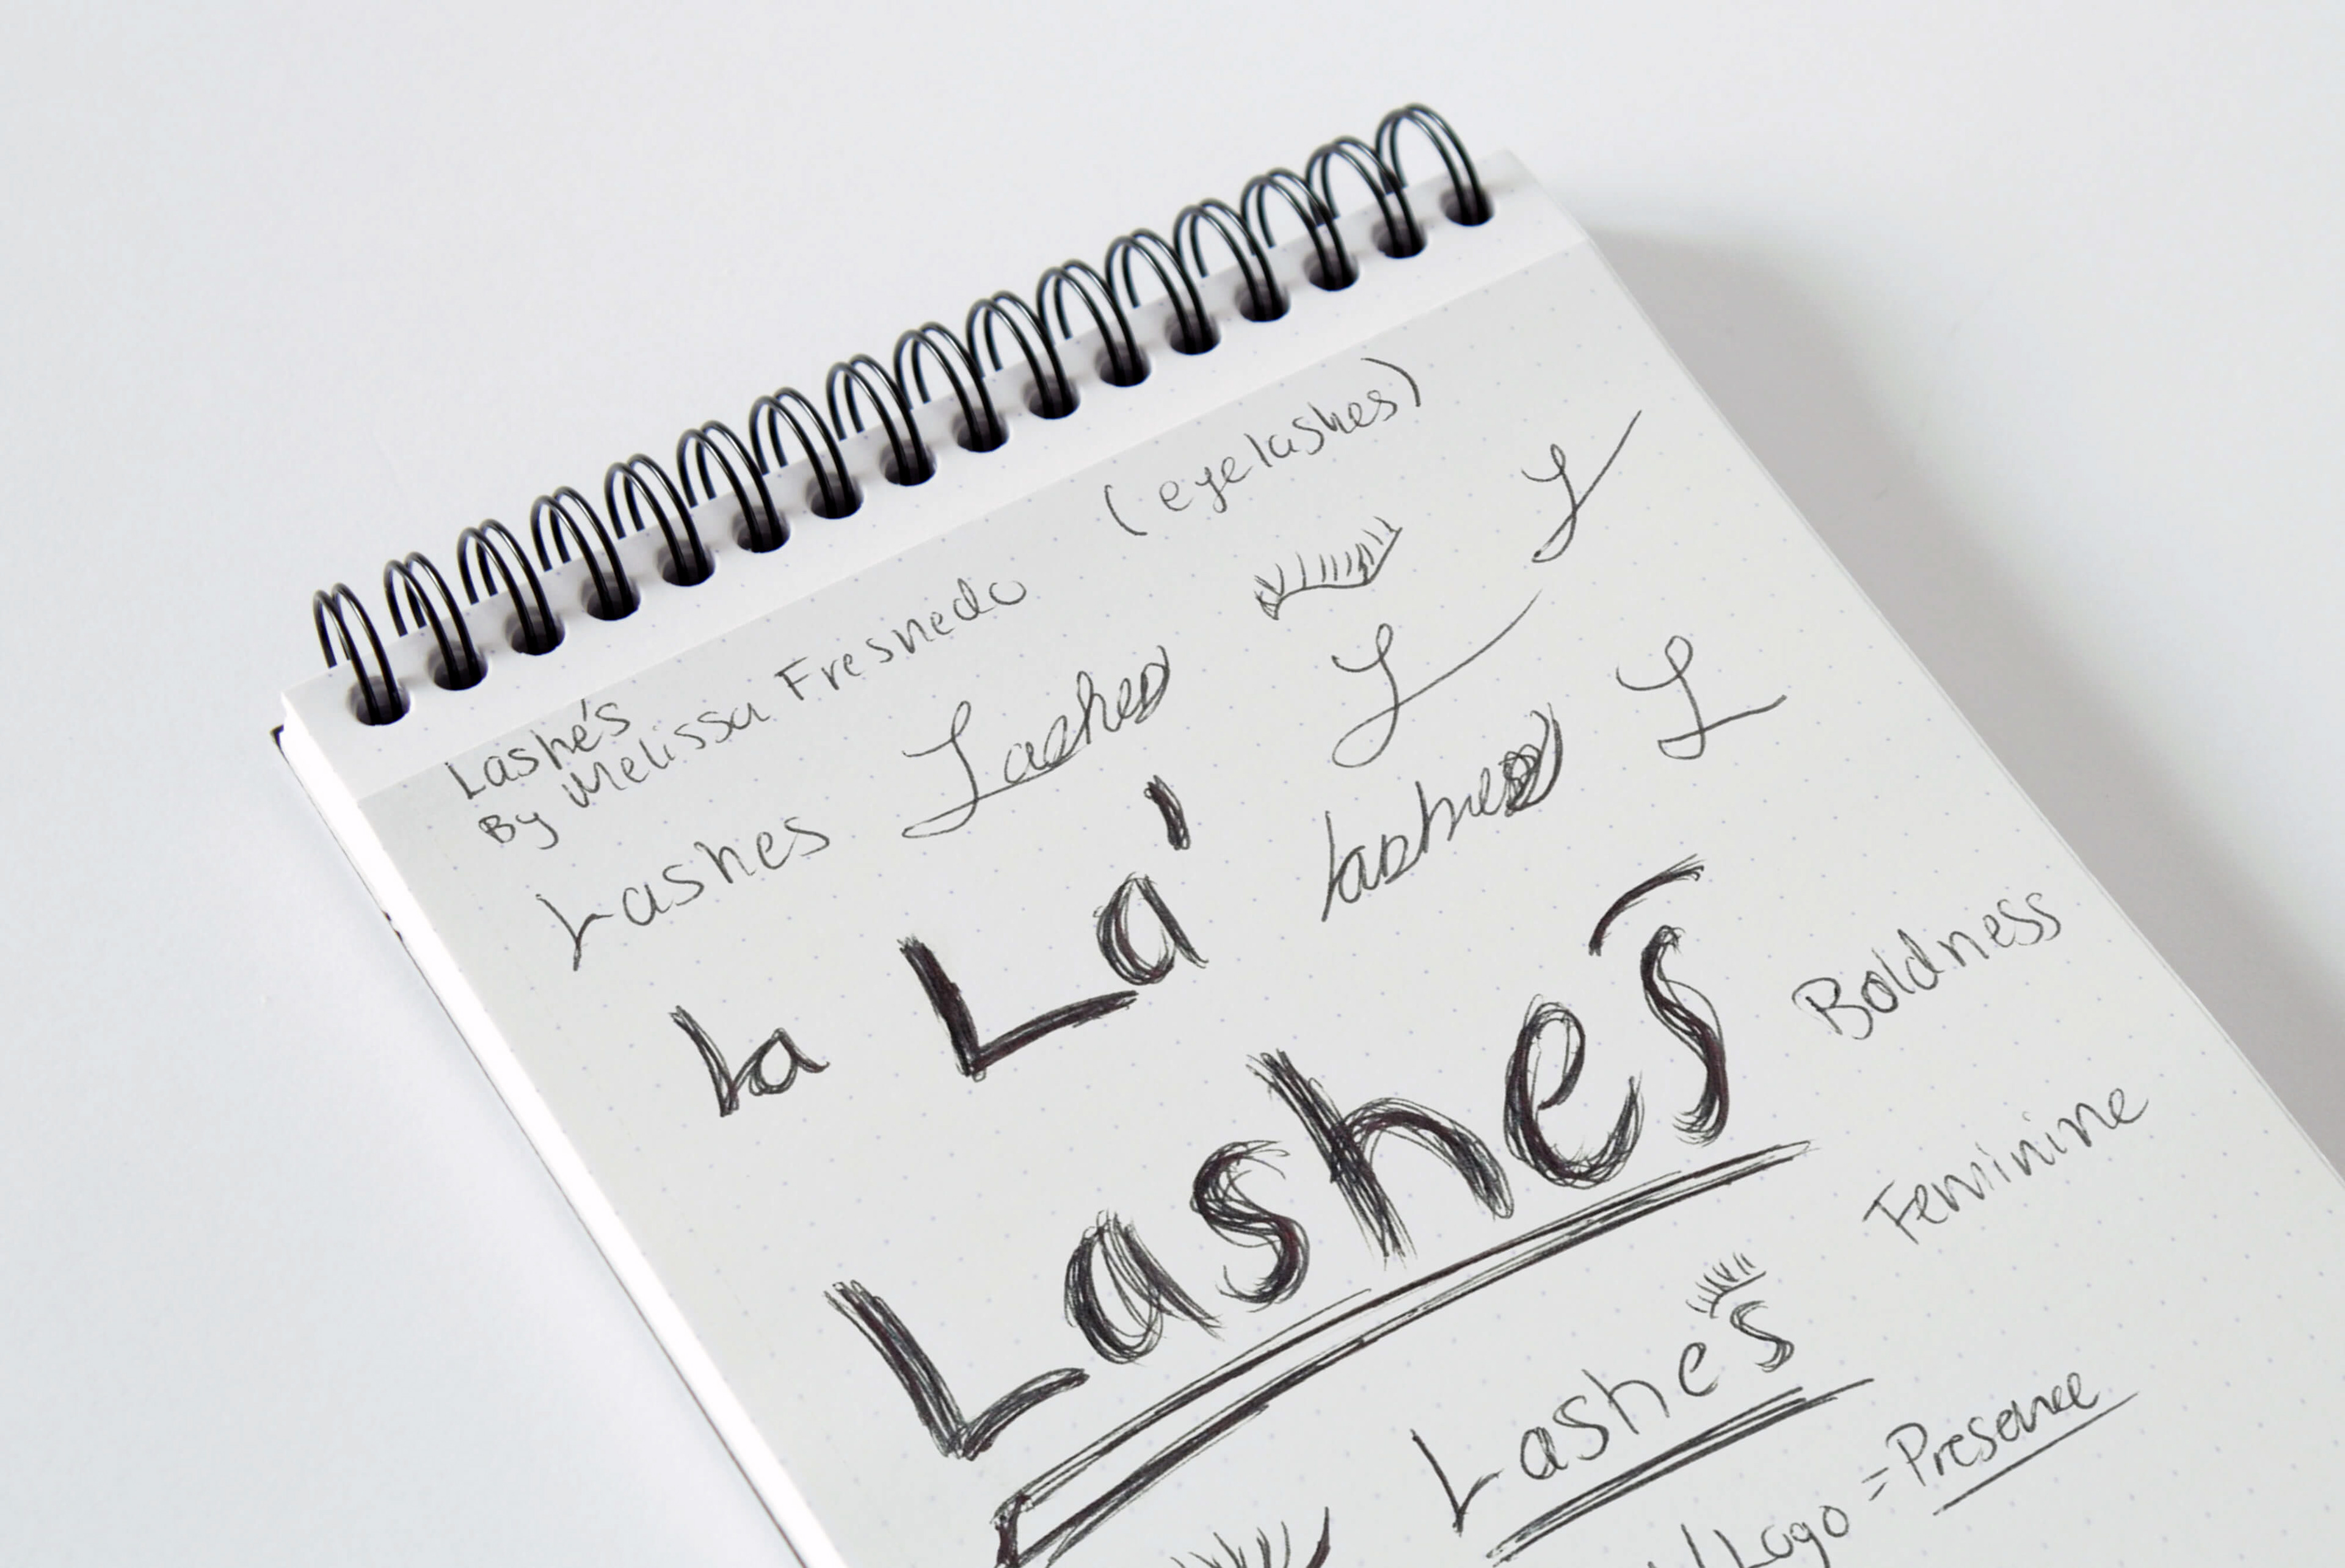 (eyelashes)
Lashé's
By Melissa Fresnedo
L
Lashes
Lashes
L
L
la
La'
lashes
Lashes
Boldness
Feminine
Lashes
Logo = Presence